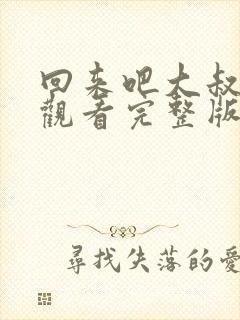 回来吧大叔
觀看完整版
尋找失落的愛